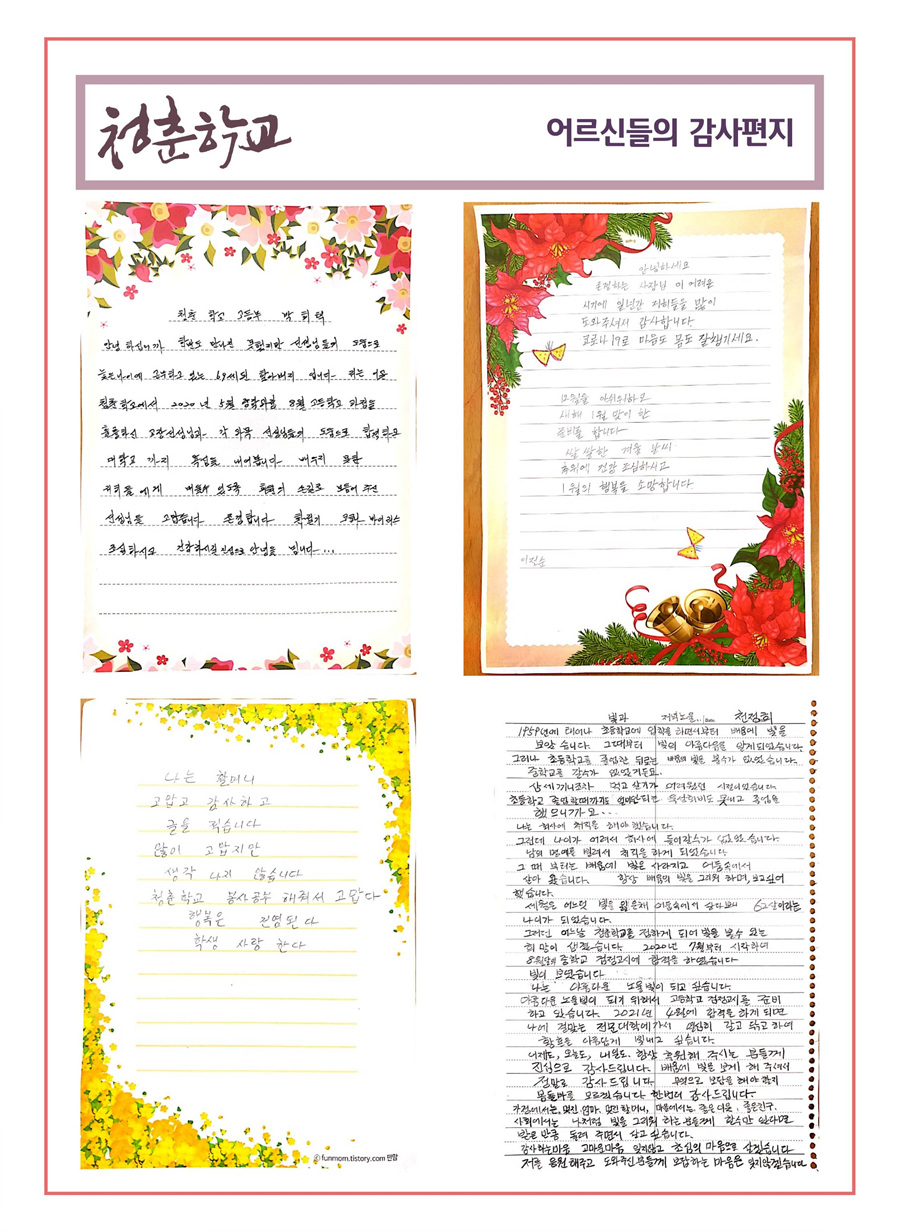 청춘학교
어르신들의 감사편지
청춘 학교 고등부 박
안녕 하십니까 선생님들의 도움으로
늦은나이에 공부하고 있는 69세된 할아버지 입니다 저는 이곳
청춘학교에서 2020년 5월 중학과정 8월 고등학교 과정을
교장선생님과 각 과목 선생님들의 도움으로 합격하고
대학교 까지 내어봅니다 배우지 못한
저희들에게 배울수 있도록
선생님들 고맙습니다 존경합니다 코로나 바이러스
조심하시고 건강하시길 진심으로 안녕을 빕니다...
안녕하세요
존경하는 사장님 이 어려운
시기에 일년간 저희들을 많이
도와주셔서 감사합니다
코로나19로 마음도 몸도 잘챙기세요.
12월을 아쉬워하고
새해 1월 맞이 한
준비를 합니다
쌀쌀한 겨울 날씨
추위에 건강 조심하시고
1월의 행복을 소망합니다
나는 할머니
고맙고 감사하고
글을 적습니다
많이 고맙지만
생각 나지 않습니다
청춘학교 봉사공부 해줘서 고맙다
행복은 된다
학생 사랑 한다
ⓒ funmom.tistory.com 펀맘
빛과 저녁노을... 천정희
195 년에 태어나 초등학교에 입학을 하면서부터 배움에 빛을
보았습니다. 그때부터 빛의 아름다움을 알게되었습니다.
그러나 초등학교를 졸업한 뒤로는 배움의 빛을 볼수가 없었습니다.
중학교를 갈수가 없었거든요.
삼세끼니조차 먹고 살기가 어려웠던 시절이었습니다.
초등학교 졸업할때까지도 육성회비도 못내고 졸업을
했으니까요...
나는 회사에 취직을 해야 했습니다.
그런데 나이가 어려서 회사에 들어갈수가 없었습니다.
남의 명의를 빌려서 취직을 하게 되었습니다
그 때 부터는 배움에 빛은 사라지고 어둠속에서
살아 왔습니다. 항상 배움의 빛을 그리워 하며, 보고싶어
했습니다.
세월은 어느덧 빛을 잃은채 어둠속에서 살다보니 62살이라는
나이가 되었습니다.
그러던 어느날 청춘학교를 접하게 되어 빛을 볼수 있는
희망이 생겼습니다. 2020년 7월부터 시작하여
8월달에 중학교 검정고시에 합격을 하였습니다
빛이 보였습니다
나는 아름다운 노을빛이 되고 싶습니다.
아름다운 노을빛이 되기 위해서 고등학교 검정고시를 준비
하고 있습니다. 2021년 4월에 합격을 하게 되면
나에 걸맞는 전문대학에 가서 열심히 갈고 닦고 하여
황혼을 아름답게 빛내고 싶습니다.
어제도, 오늘도, 내일도, 항상 응원해 주시는 분들께
진심으로 감사드립니다. 배움에 빛을 보게 해 주셔서
정말로 감사드립니다. 무엇으로 보답을 해야 할지
몸둘바를 모르겠습니다 한번더 감사드립니다.
가정에서는, 멋진엄마, 멋진할머니, 마을에서는 좋은이웃, 좋은친구,
사회에서는 나처럼 빛을 그리워 하는 분들께 할수만 있다면
받은만큼 돌려 주면서 살고 싶습니다.
감사하는마음 고마운마음 잊지않고 초심의 마음으로 살겠습니다
저를 응원해주고 도와주신분들께 보답하는 마음은 잊지않겠습니다